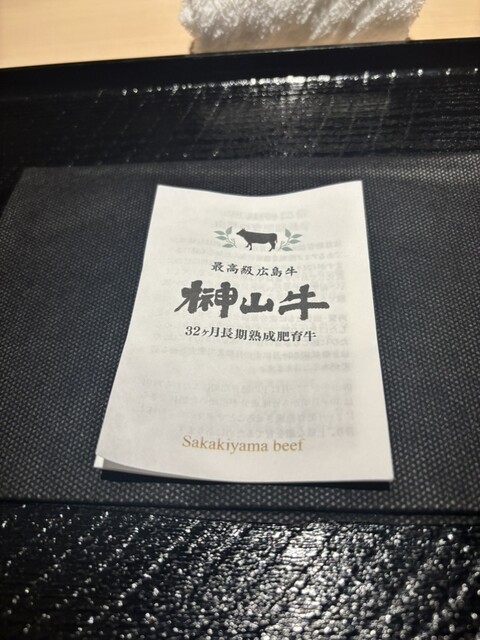 最高級広島牛
榊山牛
32ヶ月長期熟成肥育牛
Sakakiyama beef